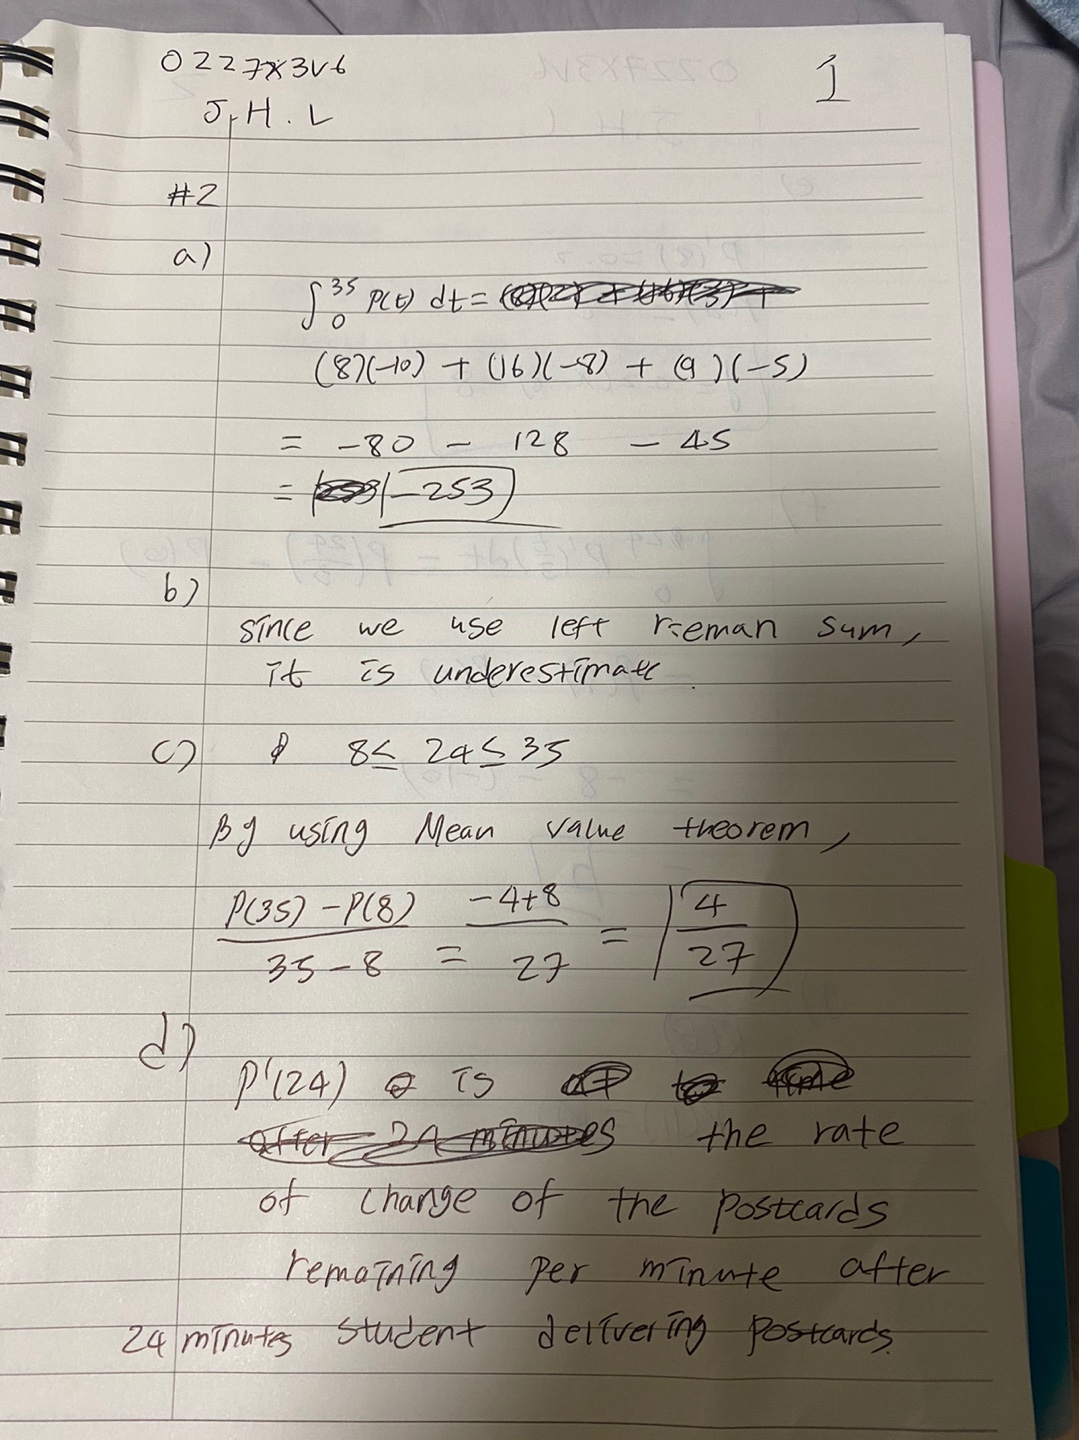 0227X3V6
J.H.L
1
#2
a)
∫₀³⁵ P(t) dt =
(8)(-10) + (16)(-8) + (9)(-5)
= -80 - 128 - 45
= -253
b)
since we use left rieman sum,
it is underestimate.
c) 8≤ 24≤35
By using Mean value theorem,
P(35)-P(8) / 35-8 = -4+8 / 27 = 4/27
d)
P'(24) is
the rate
of change of the postcards
remaining per minute after
24 minutes student delivering postcards.